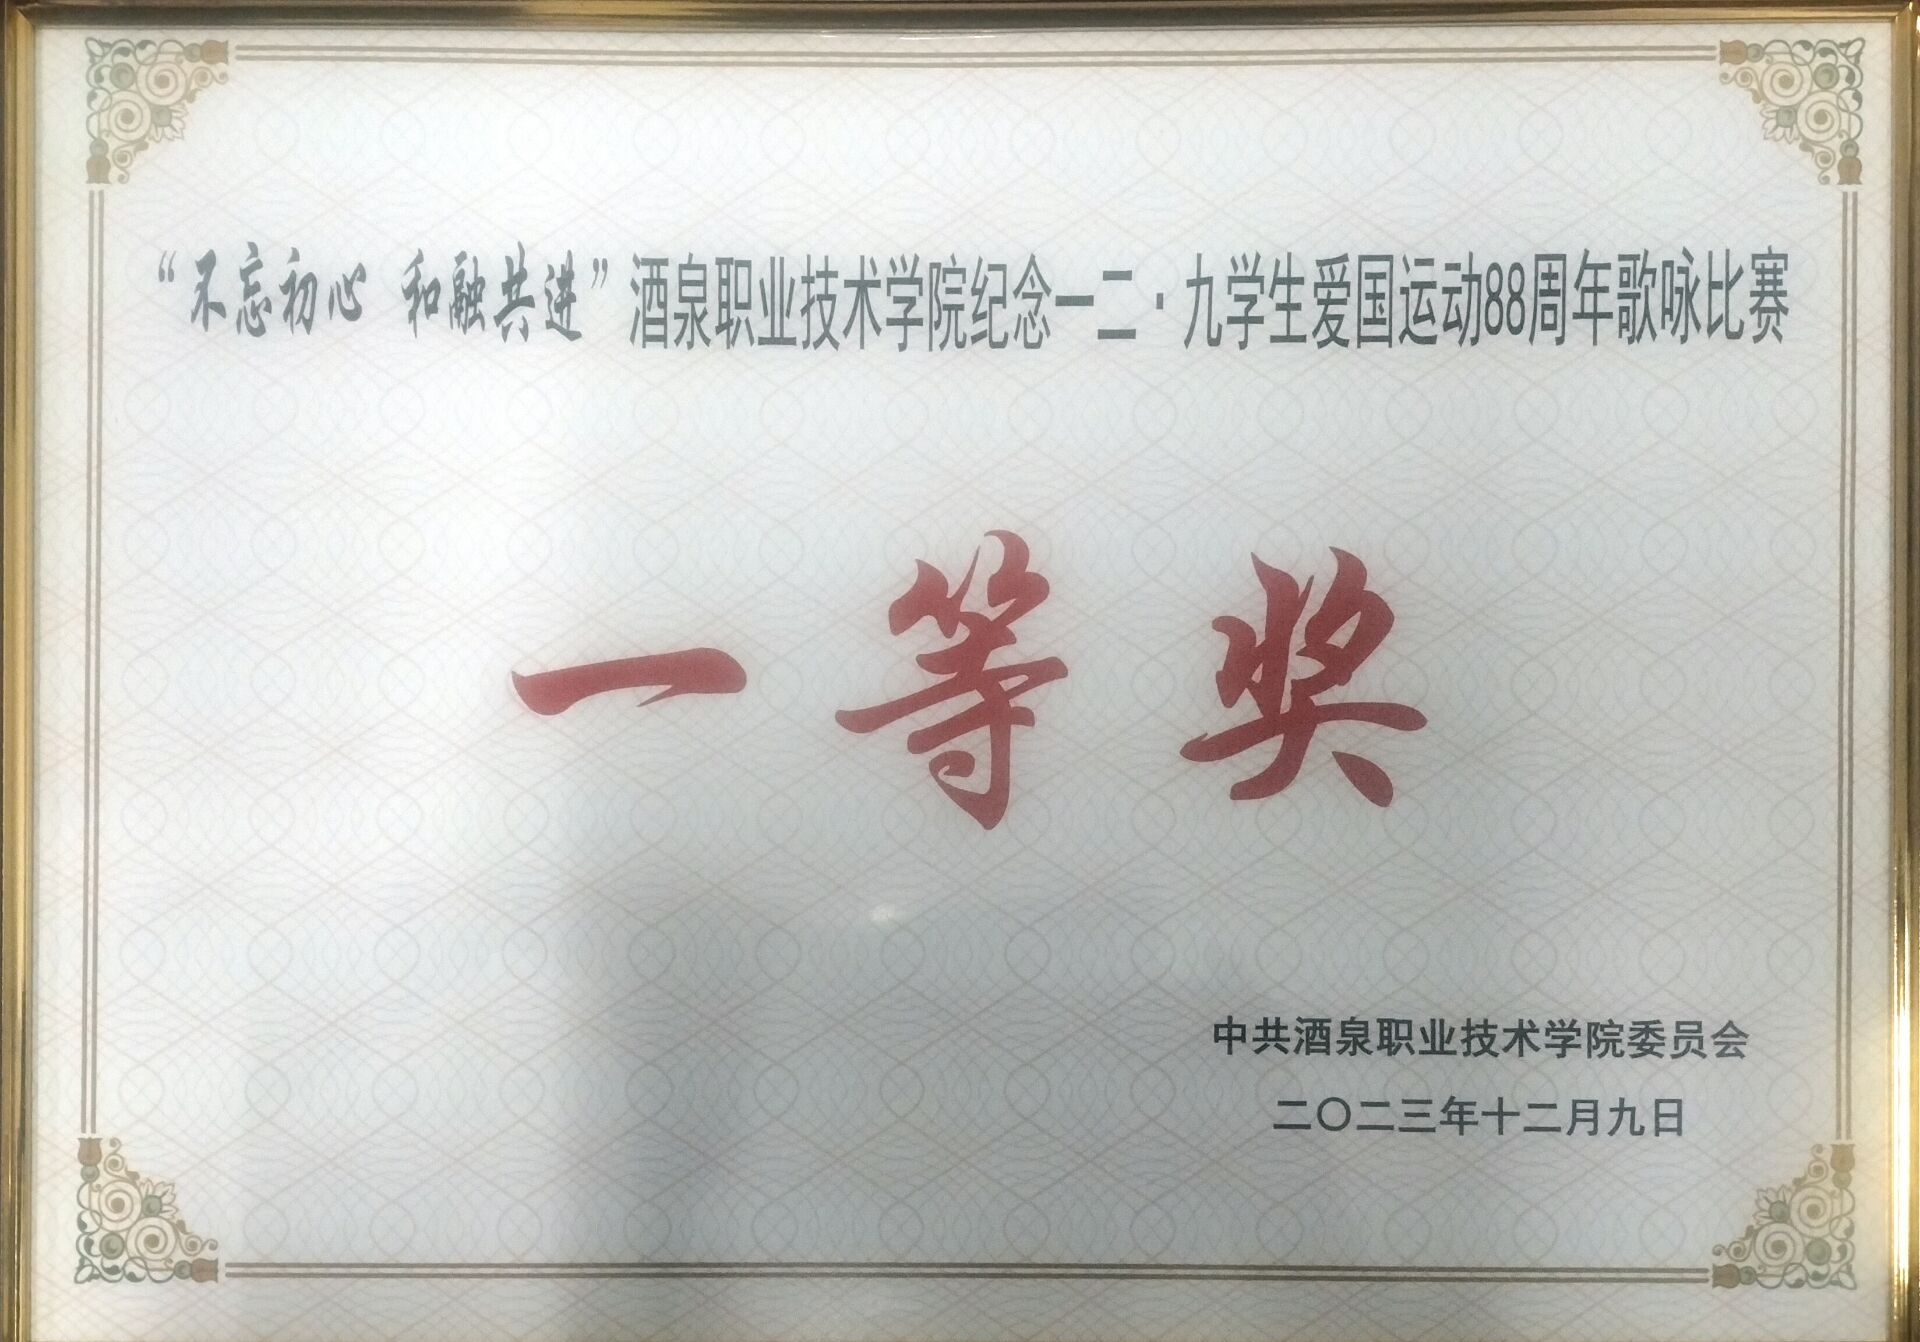 “不忘初心 和融共进”酒泉职业技术学院纪念一二·九学生爱国运动88周年歌咏比赛
一等奖
中共酒泉职业技术学院委员会
二〇二三年十二月九日